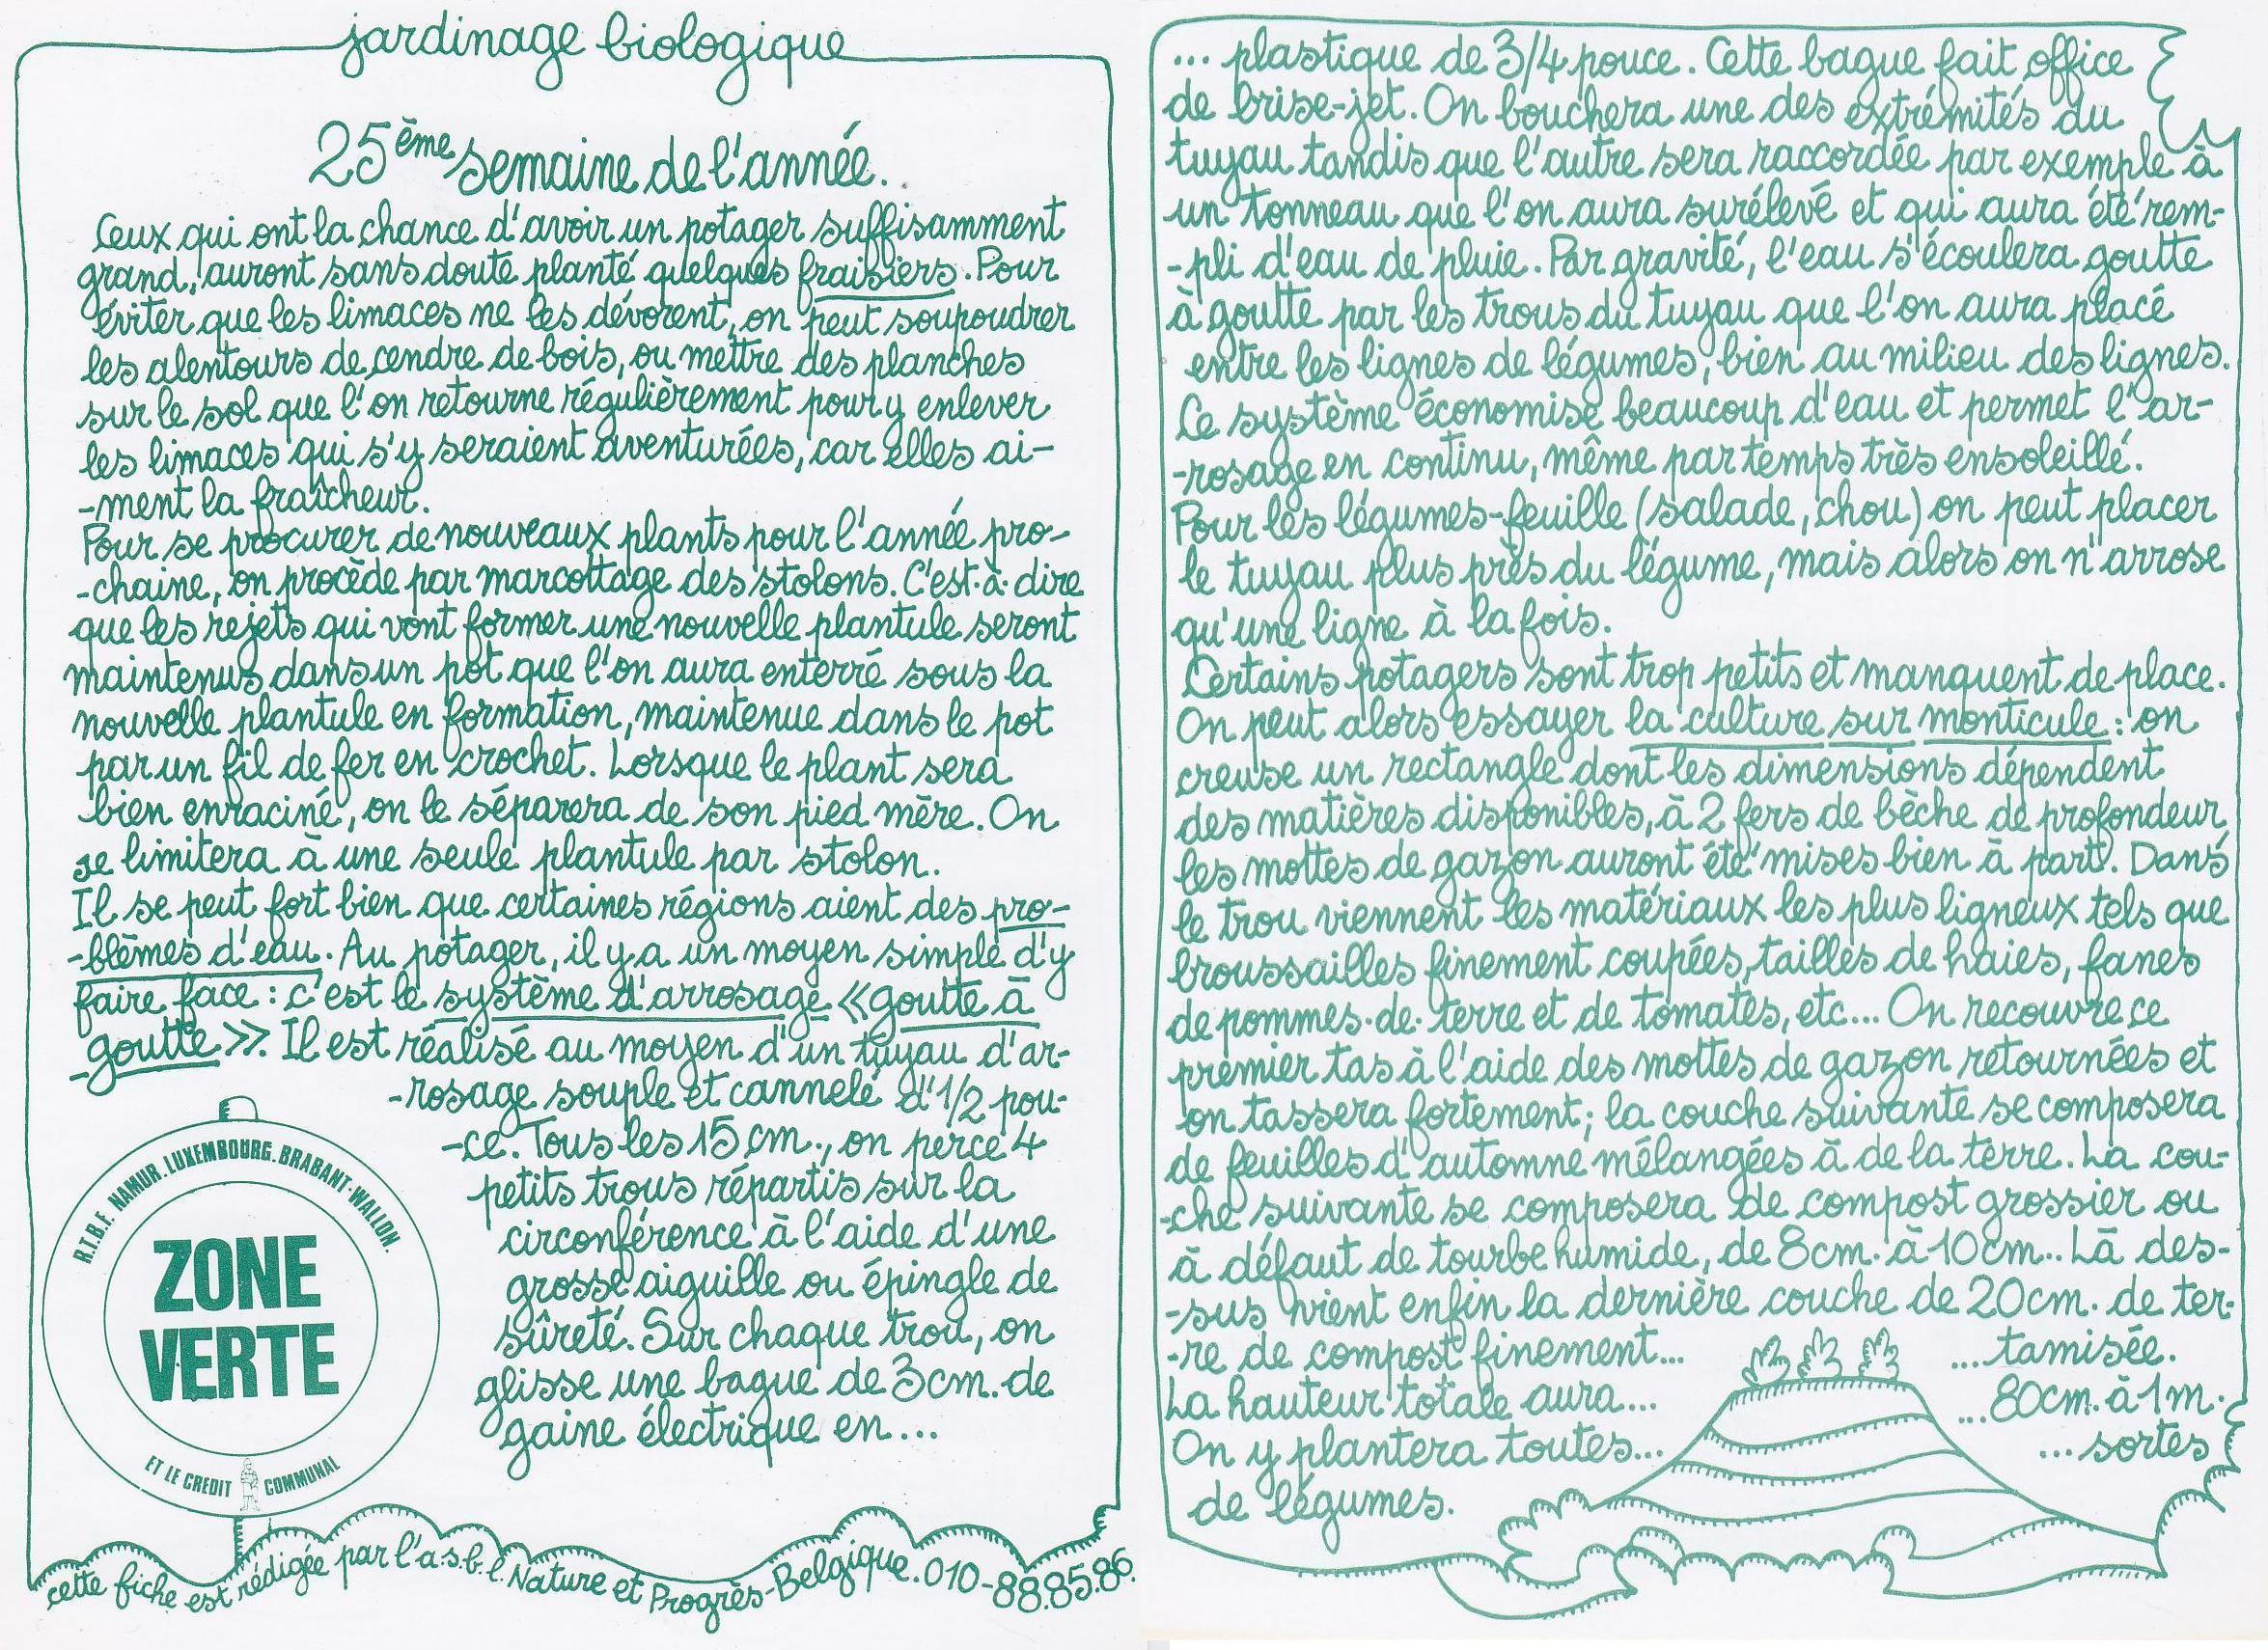 jardinage biologique
25ème semaine de l'année.
Ceux qui ont la chance d'avoir un potager suffisamment
grand, auront sans doute planté quelques fraisiers. Pour
éviter que les limaces ne les dévorent, on peut soupoudrer
les alentours de cendre de bois, ou mettre des planches
sur le sol que l'on retourne régulièrement pour y enlever
les limaces qui s'y seraient aventurées, car elles ai-
-ment la fraîcheur.
Pour se procurer de nouveaux plants pour l'année pro-
-chaine, on procède par marcottage des stolons. C'est-à-dire
que les rejets qui vont former une nouvelle plantule seront
maintenus dans un pot que l'on aura enterré sous la
nouvelle plantule en formation, maintenue dans le pot
par un fil de fer en crochet. Lorsque le plant sera
bien enraciné, on le séparera de son pied mère. On
se limitera à une seule plantule par stolon.
Il se peut fort bien que certaines régions aient des pro-
-blèmes d'eau. Au potager, il y a un moyen simple d'y
faire face : c'est le système d'arrosage «goutte à
-goutte». Il est réalisé au moyen d'un tuyau d'ar-
-rosage souple et cannelé d'1/2 pou-
-ce. Tous les 15 cm., on perce 4
petits trous répartis sur la
circonférence à l'aide d'une
grosse aiguille ou épingle de
sûreté. Sur chaque trou, on
glisse une bague de 3cm. de
gaine électrique en...
R.T.B.F. NAMUR.LUXEMBOURG.BRABANT-WALLON.
ZONE
VERTE
ET LE CREDIT COMMUNAL
cette fiche est rédigée par l'a.s.b.l. Nature et Progrès-Belgique. 010-88.85.86.
... plastique de 3/4 pouce. Cette bague fait office
de brise-jet. On bouchera une des extrémités du
tuyau tandis que l'autre sera raccordée par exemple à
un tonneau que l'on aura surélevé et qui aura été rem-
-pli d'eau de pluie. Par gravité, l'eau s'écoulera goutte
à goutte par les trous du tuyau que l'on aura placé
entre les lignes de légumes, bien au milieu des lignes.
Ce système économise beaucoup d'eau et permet l'ar-
-rosage en continu, même par temps très ensoleillé.
Pour les légumes-feuille (salade, chou) on peut placer
le tuyau plus près du légume, mais alors on n'arrose
qu'une ligne à la fois.
Certains potagers sont trop petits et manquent de place.
On peut alors essayer la culture sur monticule : on
creuse un rectangle dont les dimensions dépendent
des matières disponibles, à 2 fers de bêche de profondeur,
les mottes de gazon auront été mises bien à part. Dans
le trou viennent les matériaux les plus ligneux tels que
broussailles finement coupées, tailles de haies, fanes
de pommes-de-terre et de tomates, etc... On recouvre ce
premier tas à l'aide des mottes de gazon retournées et
on tassera fortement ; la couche suivante se composera
de feuilles d'automne mélangées à de la terre. La cou-
-che suivante se composera de compost grossier ou
à défaut de tourbe humide, de 8cm. à 10cm.. Là des-
-sus vient enfin la dernière couche de 20cm. de ter-
-re de compost finement... ...tamisée.
La hauteur totale aura... ...80cm. à 1m.
On y plantera toutes... ...sortes
de légumes.